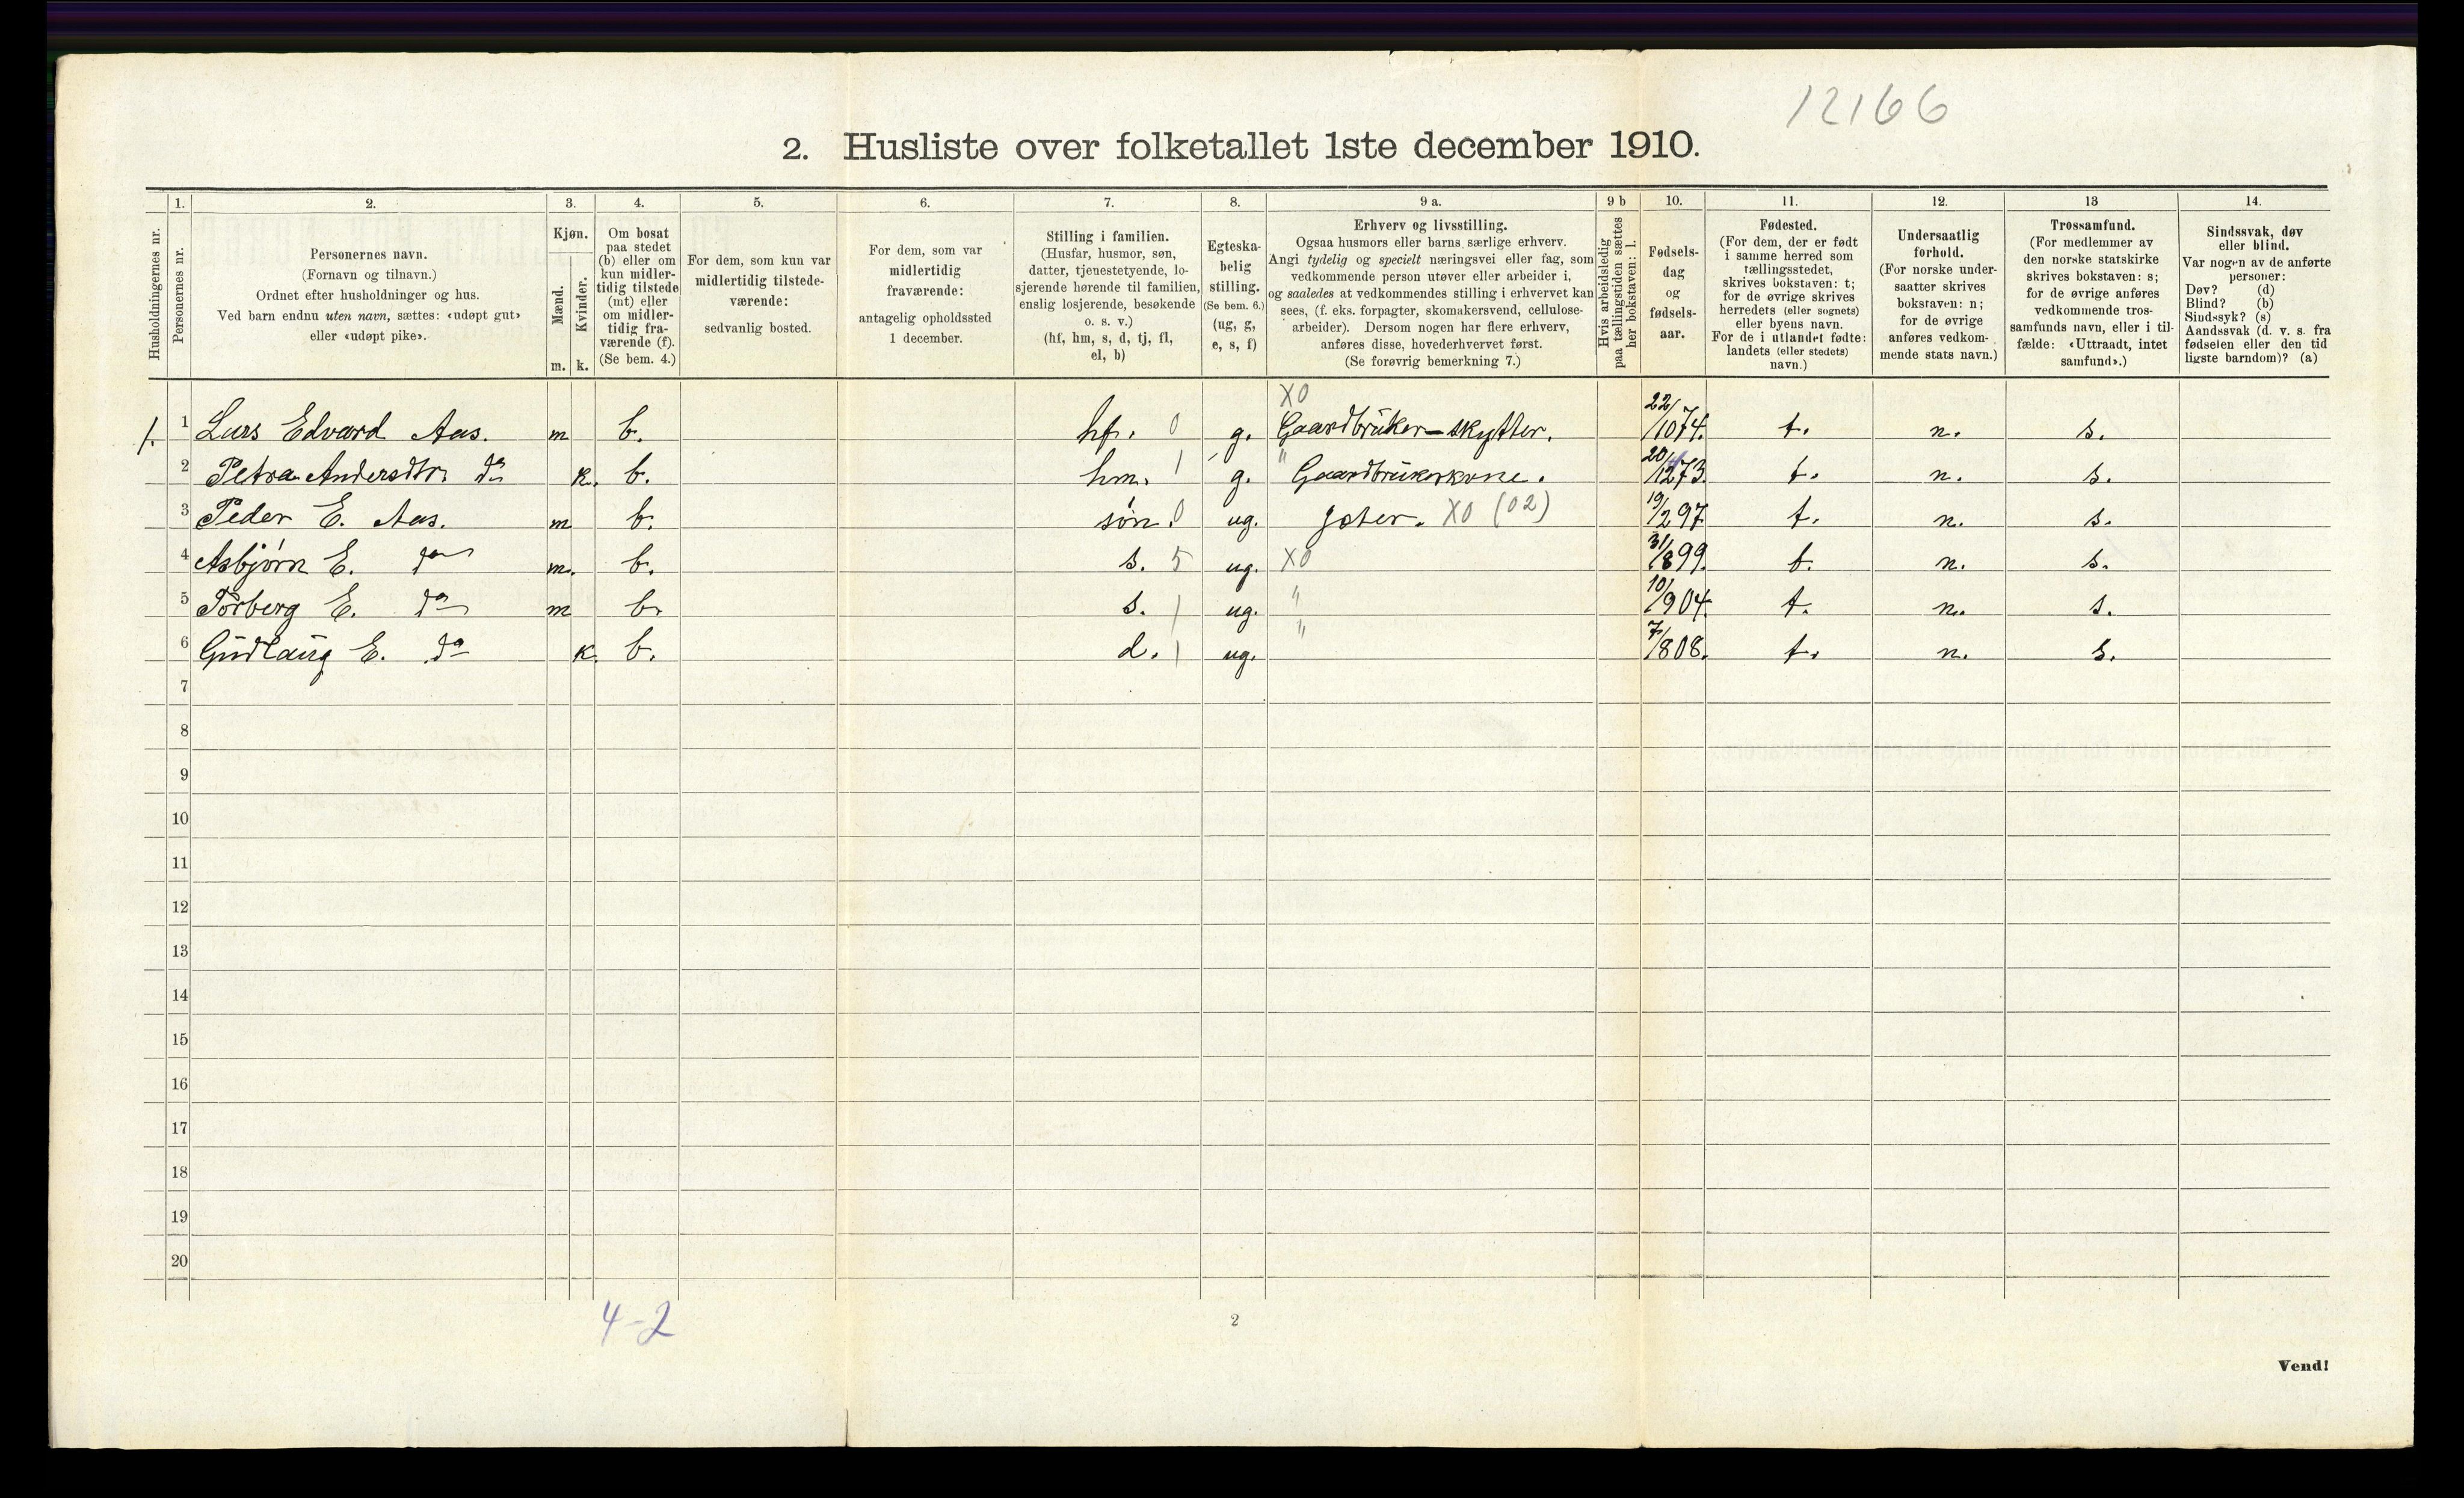 12166
2. Husliste over folketallet 1ste december 1910.
1. 2. 3. 4. 5. 6. 7. 8. 9 a. 9 b 10. 11. 12. 13 14.
Husholdningernes nr.
Personernes nr.
Personernes navn.
(Fornavn og tilnavn.)
Ordnet efter husholdninger og hus.
Ved barn endnu uten navn, sættes: «udøpt gut»
eller «udøpt pike».
Kjøn.
Mænd.
Kvinder.
m. k.
Om bosat
paa stedet
(b) eller om
kun midler-
tidig tilstede
(mt) eller
om midler-
tidig fra-
værende (f).
(Se bem. 4.)
For dem, som kun var
midlertidig tilstede-
værende:
sedvanlig bosted.
For dem, som var
midlertidig
fraværende:
antagelig opholdssted
1 december.
Stilling i familien.
(Husfar, husmor, søn,
datter, tjenestetyende, lo-
sjerende hørende til familien,
enslig losjerende, besøkende
o. s. v.)
(hf, hm, s, d, tj, fl,
el, b)
Egteska-
belig
stilling.
(Se bem. 6.)
(ug, g,
e, s, f)
Erhverv og livsstilling.
Ogsaa husmors eller barns særlige erhverv.
Angi tydelig og specielt næringsvei eller fag, som
vedkommende person utøver eller arbeider i,
og saaledes at vedkommendes stilling i erhvervet kan
sees, (f. eks. forpagter, skomakersvend, cellulose-
arbeider). Dersom nogen har flere erhverv,
anføres disse, hovederhvervet først.
(Se forøvrig bemerkning 7.)
Hvis arbeidsledig
paa tællingstiden sættes
her bokstaven: l.
Fødsels-
dag
og
fødsels-
aar.
Fødested.
(For dem, der er født
i samme herred som
tællingsstedet,
skrives bokstaven: t;
for de øvrige skrives
herredets (eller sognets)
eller byens navn.
For de i utlandet fødte:
landets (eller stedets)
navn.)
Undersaatlig
forhold.
(For norske under-
saatter skrives
bokstaven: n;
for de øvrige
anføres vedkom-
mende stats navn.)
Trossamfund.
(For medlemmer av
den norske statskirke
skrives bokstaven: s;
for de øvrige anføres
vedkommende tros-
samfunds navn, eller i til-
fælde: «Uttraadt, intet
samfund».)
Sindssvak, døv
eller blind.
Var nogen av de anførte
personer:
Døv? (d)
Blind? (b)
Sindssyk? (s)
Aandssvak (d. v. s. fra
fødselen eller den tid
ligste barndom)? (a)
X0
1. 1 Lars Edvard Aas. m b. hf. 0 g. Gaardbruker - skytter. 22/10 74. t. n. s.
2 Petra Andersdtr. do k. b. hm. 1 g. " Gaardbrukerkone. 20/12 73. t. n. s.
3 Peder E. Aas. m b. søn. 0 ug. Jæter. X0 (02) 19/2 97 t. n. s.
4 Asbjørn E. do m. b. s. 5 ug. X0 31/8 99. t. n. s.
5 Torberg E. do m b. s. 1 ug. " 10/9 04. t. n. s.
6 Gudlaug E. do k. b. d. 1 ug. " 7/8 08. t. n. s.
7
8
9
10
11
12
13
14
15
16
17
18
19
20
4-2
2
Vend!